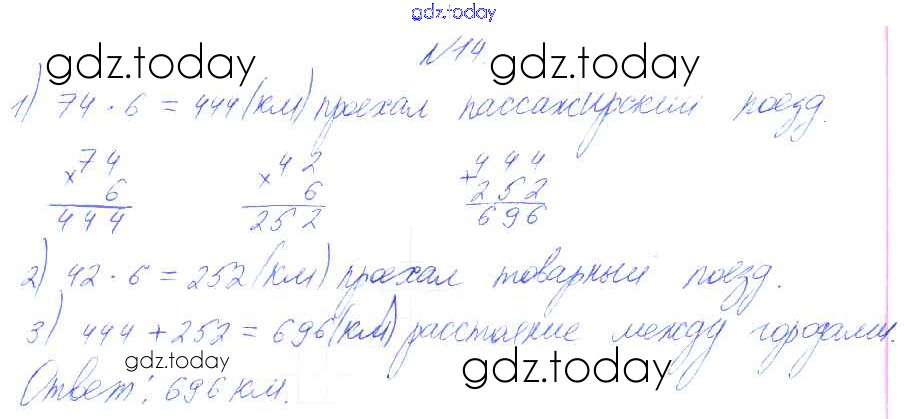 gdz.today
№14.
gdz.today gdz.today
1) 74 · 6 = 444 (км) проехал пассажирский поезд.
×74 ×42 +444
6 6 252
444 252 696
gdz.today gdz.today
2) 42 · 6 = 252 (км) проехал товарный поезд.
3) 444 + 252 = 696 (км) расстояние между городами.
gdz.today gdz.today
Ответ: 696 км.